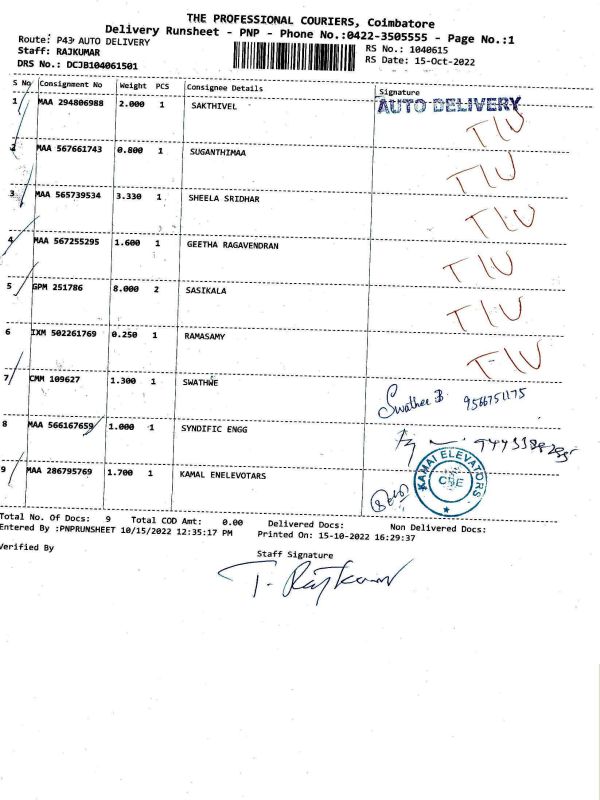 THE PROFESSIONAL COURIERS, Coimbatore
Delivery Runsheet - PNP - Phone No.:0422-3505555 - Page No.:1
Route: P43 AUTO DELIVERY
RS No.: 1040615
Staff: RAJKUMAR
RS Date: 15-Oct-2022
DRS No.: DCJB104061501
S No Consignment No Weight PCS Consignee Details Signature
AUTO DELIVERY
1 MAA 294806988 2.000 1 SAKTHIVEL TIU
2 MAA 567661743 0.800 1 SUGANTHIMAA TIU
3 MAA 565739534 3.330 1 SHEELA SRIDHAR TIU
4 MAA 567255295 1.600 1 GEETHA RAGAVENDRAN TIU
5 GPM 251786 8.000 2 SASIKALA TIU
6 IXM 502261769 0.250 1 RAMASAMY TIU
7 CMM 109627 1.300 1 SWATHWE Swathee B 9566751175
8 MAA 566167659 1.000 1 SYNDIFIC ENGG
9 MAA 286795769 1.700 1 KAMAL ENELEVOTARS
KAMAL ELEVATORS
CBE
Total No. Of Docs: 9 Total COD Amt: 0.00 Delivered Docs: Non Delivered Docs:
Entered By :PNPRUNSHEET 10/15/2022 12:35:17 PM Printed On: 15-10-2022 16:29:37
Verified By
Staff Signature
T. Rajkumar